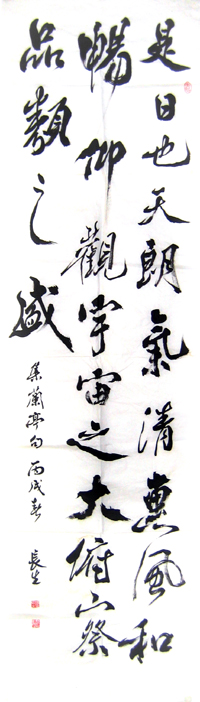 是日也天朗氣清惠風和
暢仰觀宇宙之大俯察
品類之盛
集蘭亭句丙戌春 長生